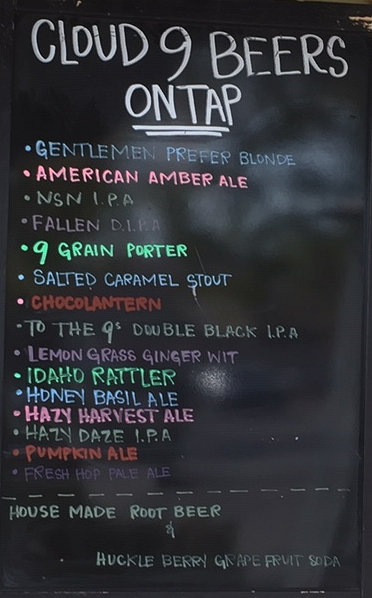 CLOUD 9 BEERS
ON TAP
• GENTLEMEN PREFER BLONDE
• AMERICAN AMBER ALE
• NSN I.P.A
• FALLEN D.I.P.A
• 9 GRAIN PORTER
• SALTED CARAMEL STOUT
• CHOCOLANTERN
• TO THE 9s DOUBLE BLACK I.P.A
• LEMON GRASS GINGER WIT
• IDAHO RATTLER
• HONEY BASIL ALE
• HAZY HARVEST ALE
• HAZY DAZE I.P.A
• PUMPKIN ALE
• FRESH HOP PALE ALE
HOUSE MADE ROOT BEER
&
HUCKLE BERRY GRAPE FRUIT SODA